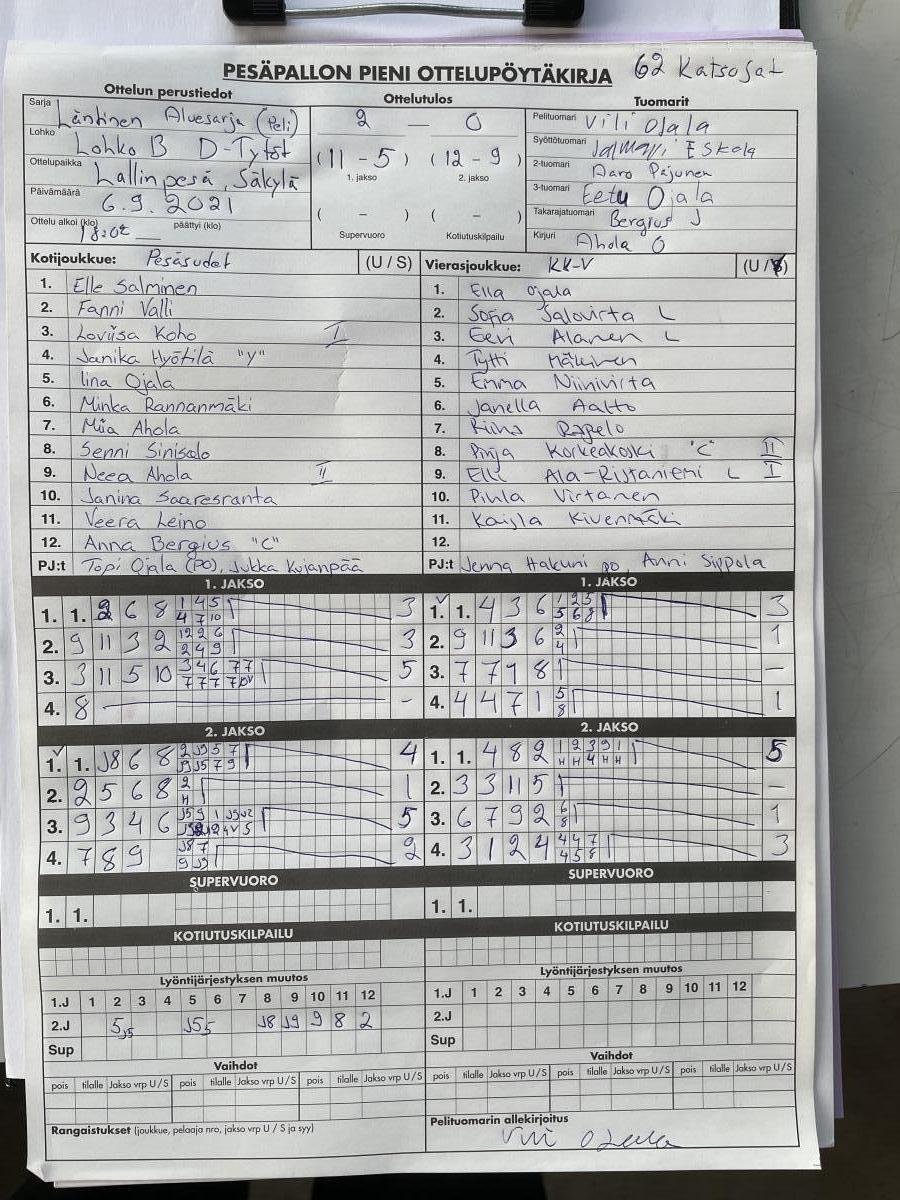 PESÄPALLON PIENI OTTELUPÖYTÄKIRJA 62 Katsojat
Ottelun perustiedot Ottelutulos Tuomarit
Sarja Läntinen Aluesarja (Peli)
Lohko Lohko B D-Tytöt
Ottelupaikka Lallinpesä, Säkylä
Päivämäärä 6.9.2021
Ottelu alkoi (klo) 18:02 päättyi (klo)
2 – 0
(11 - 5) (12 - 9)
1. jakso 2. jakso
( - ) ( - )
Supervuoro Kotiutuskilpailu
Pelituomari Vili Ojala
Syöttötuomari Jalmari Eskola
2-tuomari Aaro Pajunen
3-tuomari Eetu Ojala
Takarajatuomari Bergius J
Kirjuri Ahola O
Kotijoukkue: Pesäsudet (U / S)
1. Elle Salminen
2. Fanni Valli
3. Loviisa Koho I
4. Janika Hyötilä "Y"
5. Iina Ojala
6. Minka Rannanmäki
7. Miia Ahola
8. Senni Sinisalo
9. Neea Ahola II
10. Janina Saaresranta
11. Veera Leino
12. Anna Bergius "C"
PJ:t Topi Ojala (PO), Jukka Kujanpää
Vierasjoukkue: KK-V (U / S)
1. Ella Ojala
2. Sofia Jalovirta L
3. Eevi Alanen L
4. Tytti Mäkinen
5. Emma Niinivirta
6. Janella Aalto
7. Riina Rapelo
8. Pinja Korkeakoski "C" II
9. Elli Ala-Ristaniemi L I
10. Pihla Virtanen
11. Kaisla Kivenmäki
12.
PJ:t Jenna Hakuni PO, Anni Sippola
1. JAKSO
1. 1. 2 6 8 1 4 5 3
4 7 10
2. 9 11 3 2 3
3. 3 11 5 10 5
4. 8 -
1. JAKSO
1. 1. 4 3 6 1 2 3 3
5 6 8
2. 9 11 3 6 2 1
4
3. 7 7 9 8 –
4. 4 4 7 1 5 1
8
2. JAKSO
1. 1. J8 6 8 4
2. 2 5 6 8 2 1
H
3. 9 3 4 6 5
4. 7 8 9 J8 7 2
9 J9
2. JAKSO
1. 1. 4 8 2 1 2 3 9 1 5
H H 4 H H
2. 3 3 11 5 –
3. 6 7 9 2 6 1
8
4. 3 1 2 4 4 4 7 3
4 5 8
SUPERVUORO SUPERVUORO
1. 1. 1. 1.
KOTIUTUSKILPAILU KOTIUTUSKILPAILU
Lyöntijärjestyksen muutos
1.J 1 2 3 4 5 6 7 8 9 10 11 12
2.J 5 J5 J5 5 J8 J9 9 8 2
Sup
Lyöntijärjestyksen muutos
1.J 1 2 3 4 5 6 7 8 9 10 11 12
2.J
Sup
Vaihdot
pois tilalle Jakso vrp U / S pois tilalle Jakso vrp U / S pois tilalle Jakso vrp U / S
Vaihdot
pois tilalle Jakso vrp U / S pois tilalle Jakso vrp U / S pois tilalle Jakso vrp U / S
Rangaistukset (joukkue, pelaaja nro, jakso vrp U / S ja syy)
Pelituomarin allekirjoitus
Vili Ojala